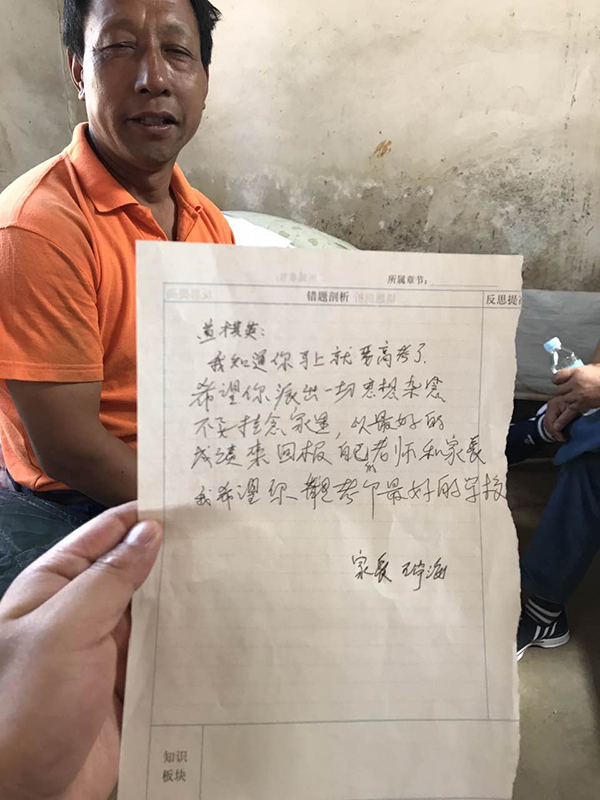 所属章节:
错题剖析 反思提
我知道你马上就要高考了
希望你派出一切思想杂念
不要挂念家里,以最好的
成绩来回报自己的老师和家长
我希望你 考个最好的学校
家长
知识
板块